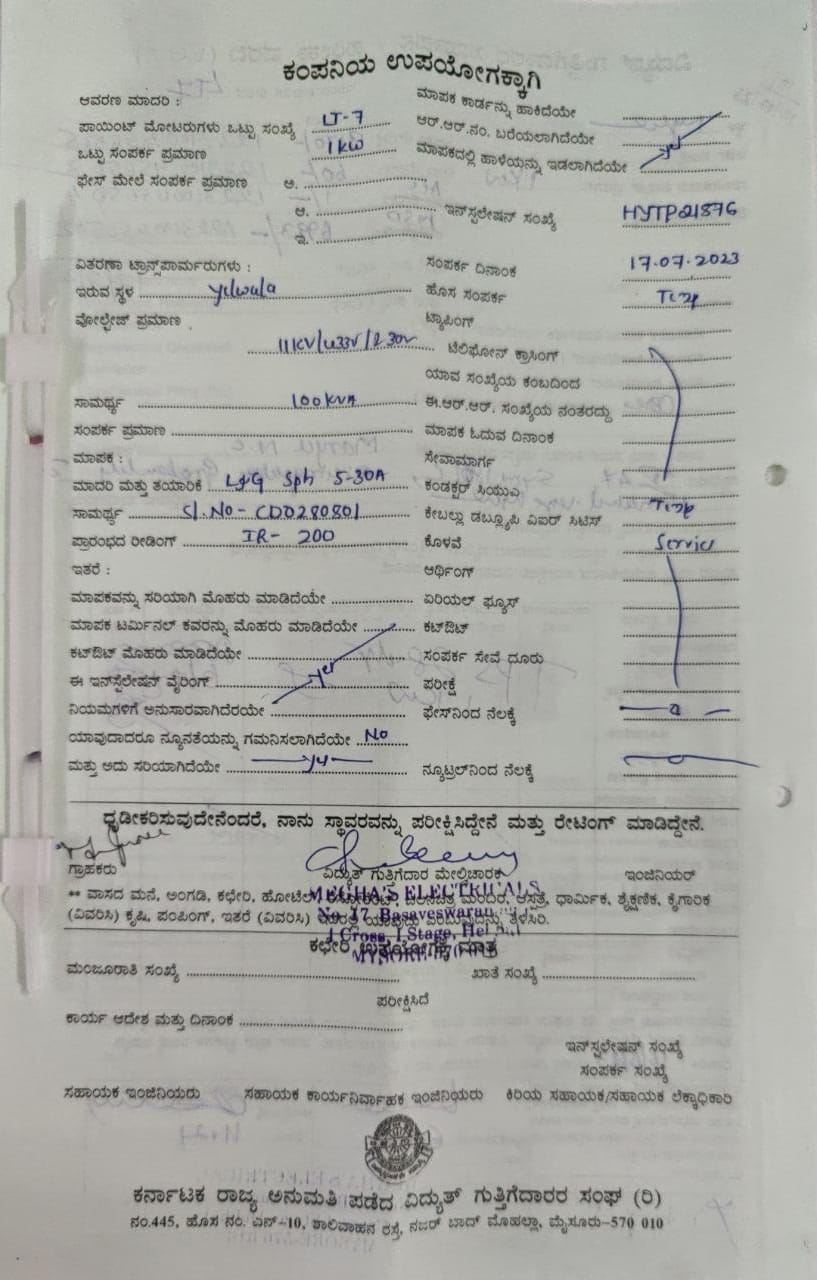 ಕಂಪನಿಯ ಉಪಯೋಗಕ್ಕಾಗಿ
ಆವರಣ ಮಾದರಿ :
ಮಾಪಕ ಕಾರ್ಡನ್ನು ಹಾಕಿದೆಯೇ
ಪಾಯಿಂಟ್ ಮೋಟರುಗಳು ಒಟ್ಟು ಸಂಖ್ಯೆ LT-7
ಆರ್.ಆರ್.ನಂ. ಬರೆಯಲಾಗಿದೆಯೇ
ಒಟ್ಟು ಸಂಪರ್ಕ ಪ್ರಮಾಣ 1KW
ಮಾಪಕದಲ್ಲಿ ಹಾಳೆಯನ್ನು ಇಡಲಾಗಿದೆಯೇ yes
ಫೇಸ್ ಮೇಲೆ ಸಂಪರ್ಕ ಪ್ರಮಾಣ ಅ.
ಆ. ಇನ್‌ಸ್ಟಲೇಷನ್ ಸಂಖ್ಯೆ HYTP21876
ಇ.
ವಿತರಣಾ ಟ್ರಾನ್ಸ್‌ಫಾರ್ಮರುಗಳು : ಸಂಪರ್ಕ ದಿನಾಂಕ 17.07.2023
ಇರುವ ಸ್ಥಳ Yelwala ಹೊಸ ಸಂಪರ್ಕ Temp
ವೋಲ್ಟೇಜ್ ಪ್ರಮಾಣ ಟ್ಯಾಪಿಂಗ್
11KV/433V/230V ಟೆಲಿಫೋನ್ ಕ್ರಾಸಿಂಗ್
ಯಾವ ಸಂಖ್ಯೆಯ ಕಂಬದಿಂದ
ಸಾಮರ್ಥ್ಯ 100KVA ಈ.ಆರ್.ಆರ್. ಸಂಖ್ಯೆಯ ನಂತರದ್ದು
ಸಂಪರ್ಕ ಪ್ರಮಾಣ ಮಾಪಕ ಓದುವ ದಿನಾಂಕ
ಮಾಪಕ : ಸೇವಾಮಾರ್ಗ
ಮಾದರಿ ಮತ್ತು ತಯಾರಿಕೆ L&G Sph 5-30A ಕಂಡಕ್ಟರ್ ಸಿಯುಎ
ಸಾಮರ್ಥ್ಯ Sl.No- CD0280801 ಕೇಬಲ್ಲು ಡಬ್ಲ್ಯೂಪಿ ವಿಐರ್ ಸಿಟಿಸ್ Temp
ಪ್ರಾರಂಭದ ರೀಡಿಂಗ್ IR- 200 ಕೊಳವೆ Service
ಇತರೆ : ಆರ್ಥಿಂಗ್
ಮಾಪಕವನ್ನು ಸರಿಯಾಗಿ ಮೊಹರು ಮಾಡಿದೆಯೇ ಏರಿಯಲ್ ಫ್ಯೂಸ್
ಮಾಪಕ ಟರ್ಮಿನಲ್ ಕವರನ್ನು ಮೊಹರು ಮಾಡಿದೆಯೇ ಕಟ್‌ಔಟ್
ಕಟ್‌ಔಟ್ ಮೊಹರು ಮಾಡಿದೆಯೇ ಸಂಪರ್ಕ ಸೇವೆ ದೂರು
ಈ ಇನ್‌ಸ್ಟಲೇಷನ್ ವೈರಿಂಗ್ yes ಪರೀಕ್ಷೆ
ನಿಯಮಗಳಿಗೆ ಅನುಸಾರವಾಗಿದೆರಯೇ ಫೇಸ್‌ನಿಂದ ನೆಲಕ್ಕೆ
ಯಾವುದಾದರೂ ನ್ಯೂನತೆಯನ್ನು ಗಮನಿಸಲಾಗಿದೆಯೇ No
ಮತ್ತು ಅದು ಸರಿಯಾಗಿದೆಯೇ ನ್ಯೂಟ್ರಲ್‌ನಿಂದ ನೆಲಕ್ಕೆ
ಧೃಡೀಕರಿಸುವುದೇನೆಂದರೆ, ನಾನು ಸ್ಥಾವರವನ್ನು ಪರೀಕ್ಷಿಸಿದ್ದೇನೆ ಮತ್ತು ರೇಟಿಂಗ್ ಮಾಡಿದ್ದೇನೆ.
ಗ್ರಾಹಕರು ವಿದ್ಯುತ್ ಗುತ್ತಿಗೆದಾರ ಮೇಲ್ವಿಚಾರಕ ಇಂಜಿನಿಯರ್
** ವಾಸದ ಮನೆ, ಅಂಗಡಿ, ಕಛೇರಿ, ಹೋಟೆಲ್ ಮಂದಿರ, ಆಸ್ಪತ್ರೆ, ಧಾರ್ಮಿಕ, ಶೈಕ್ಷಣಿಕ, ಕೈಗಾರಿಕ
(ವಿವರಿಸಿ) ಕೃಷಿ, ಪಂಪಿಂಗ್, ಇತರೆ (ವಿವರಿಸಿ) ತಿಳಿಸಿರಿ.
MEGHA'S ELECTRICALS
No. 17, Basaveswara
I Cross, I Stage,
MYSORE
ಕಛೇರಿ ಉಪಯೋಗಕ್ಕೆ ಮಾತ್ರ
ಮಂಜೂರಾತಿ ಸಂಖ್ಯೆ ಖಾತೆ ಸಂಖ್ಯೆ
ಪರೀಕ್ಷಿಸಿದೆ
ಕಾರ್ಯ ಆದೇಶ ಮತ್ತು ದಿನಾಂಕ
ಇನ್‌ಸ್ಟಲೇಷನ್ ಸಂಖ್ಯೆ
ಸಂಪರ್ಕ ಸಂಖ್ಯೆ
ಸಹಾಯಕ ಇಂಜಿನಿಯರು ಸಹಾಯಕ ಕಾರ್ಯನಿರ್ವಾಹಕ ಇಂಜಿನಿಯರು ಕಿರಿಯ ಸಹಾಯಕ/ಸಹಾಯಕ ಲೆಕ್ಕಾಧಿಕಾರಿ
ಕರ್ನಾಟಕ ರಾಜ್ಯ ಅನುಮತಿ ಪಡೆದ ವಿದ್ಯುತ್ ಗುತ್ತಿಗೆದಾರರ ಸಂಘ (ರಿ)
ನಂ.445, ಹೊಸ ನಂ. ಎನ್-10, ಶಾಲಿವಾಹನ ರಸ್ತೆ, ನಜರ್ ಬಾದ್ ಮೊಹಲ್ಲಾ, ಮೈಸೂರು-570 010